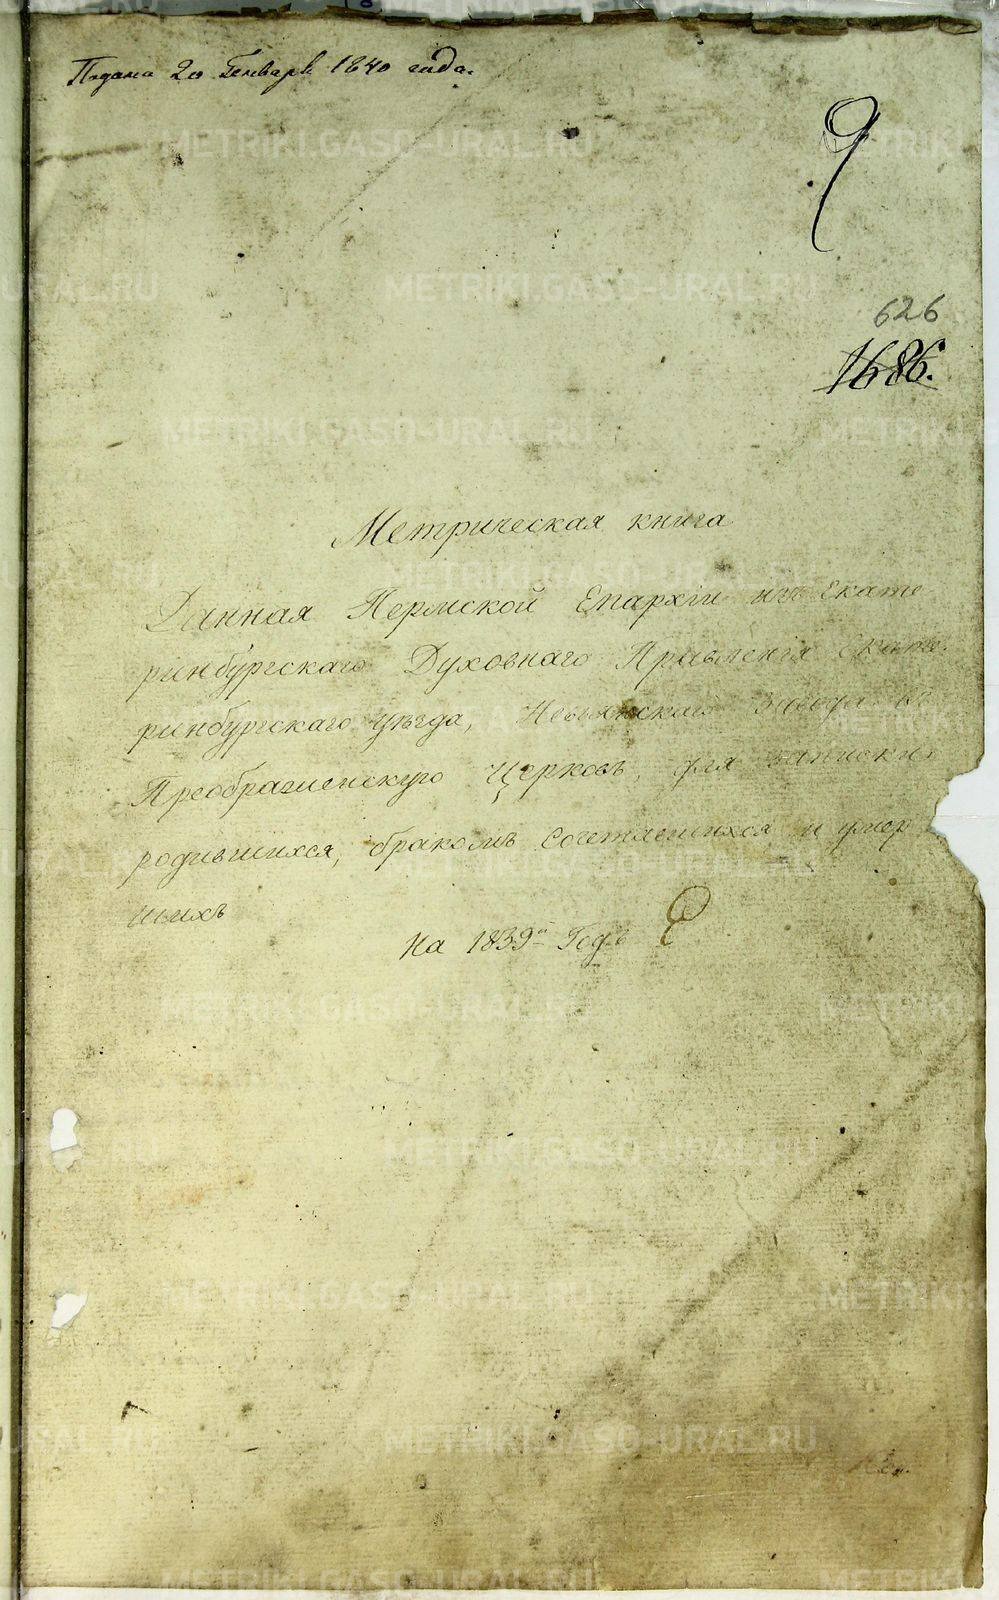 Подана 20 Генваря 1840 года.
9
626
1686.
Метрическая книга
Данная Пермской Епархіи изъ Екате
ринбургскаго Духовнаго Правленія Екате
ринбургскаго уѣзда, Невьянскаго Завода въ
Преображенскую Церковь, для записки
родившихся, бракомъ сочетавшихся и умер
шихъ
на 1839й Годъ
METRIKI.GASO-URAL.RU